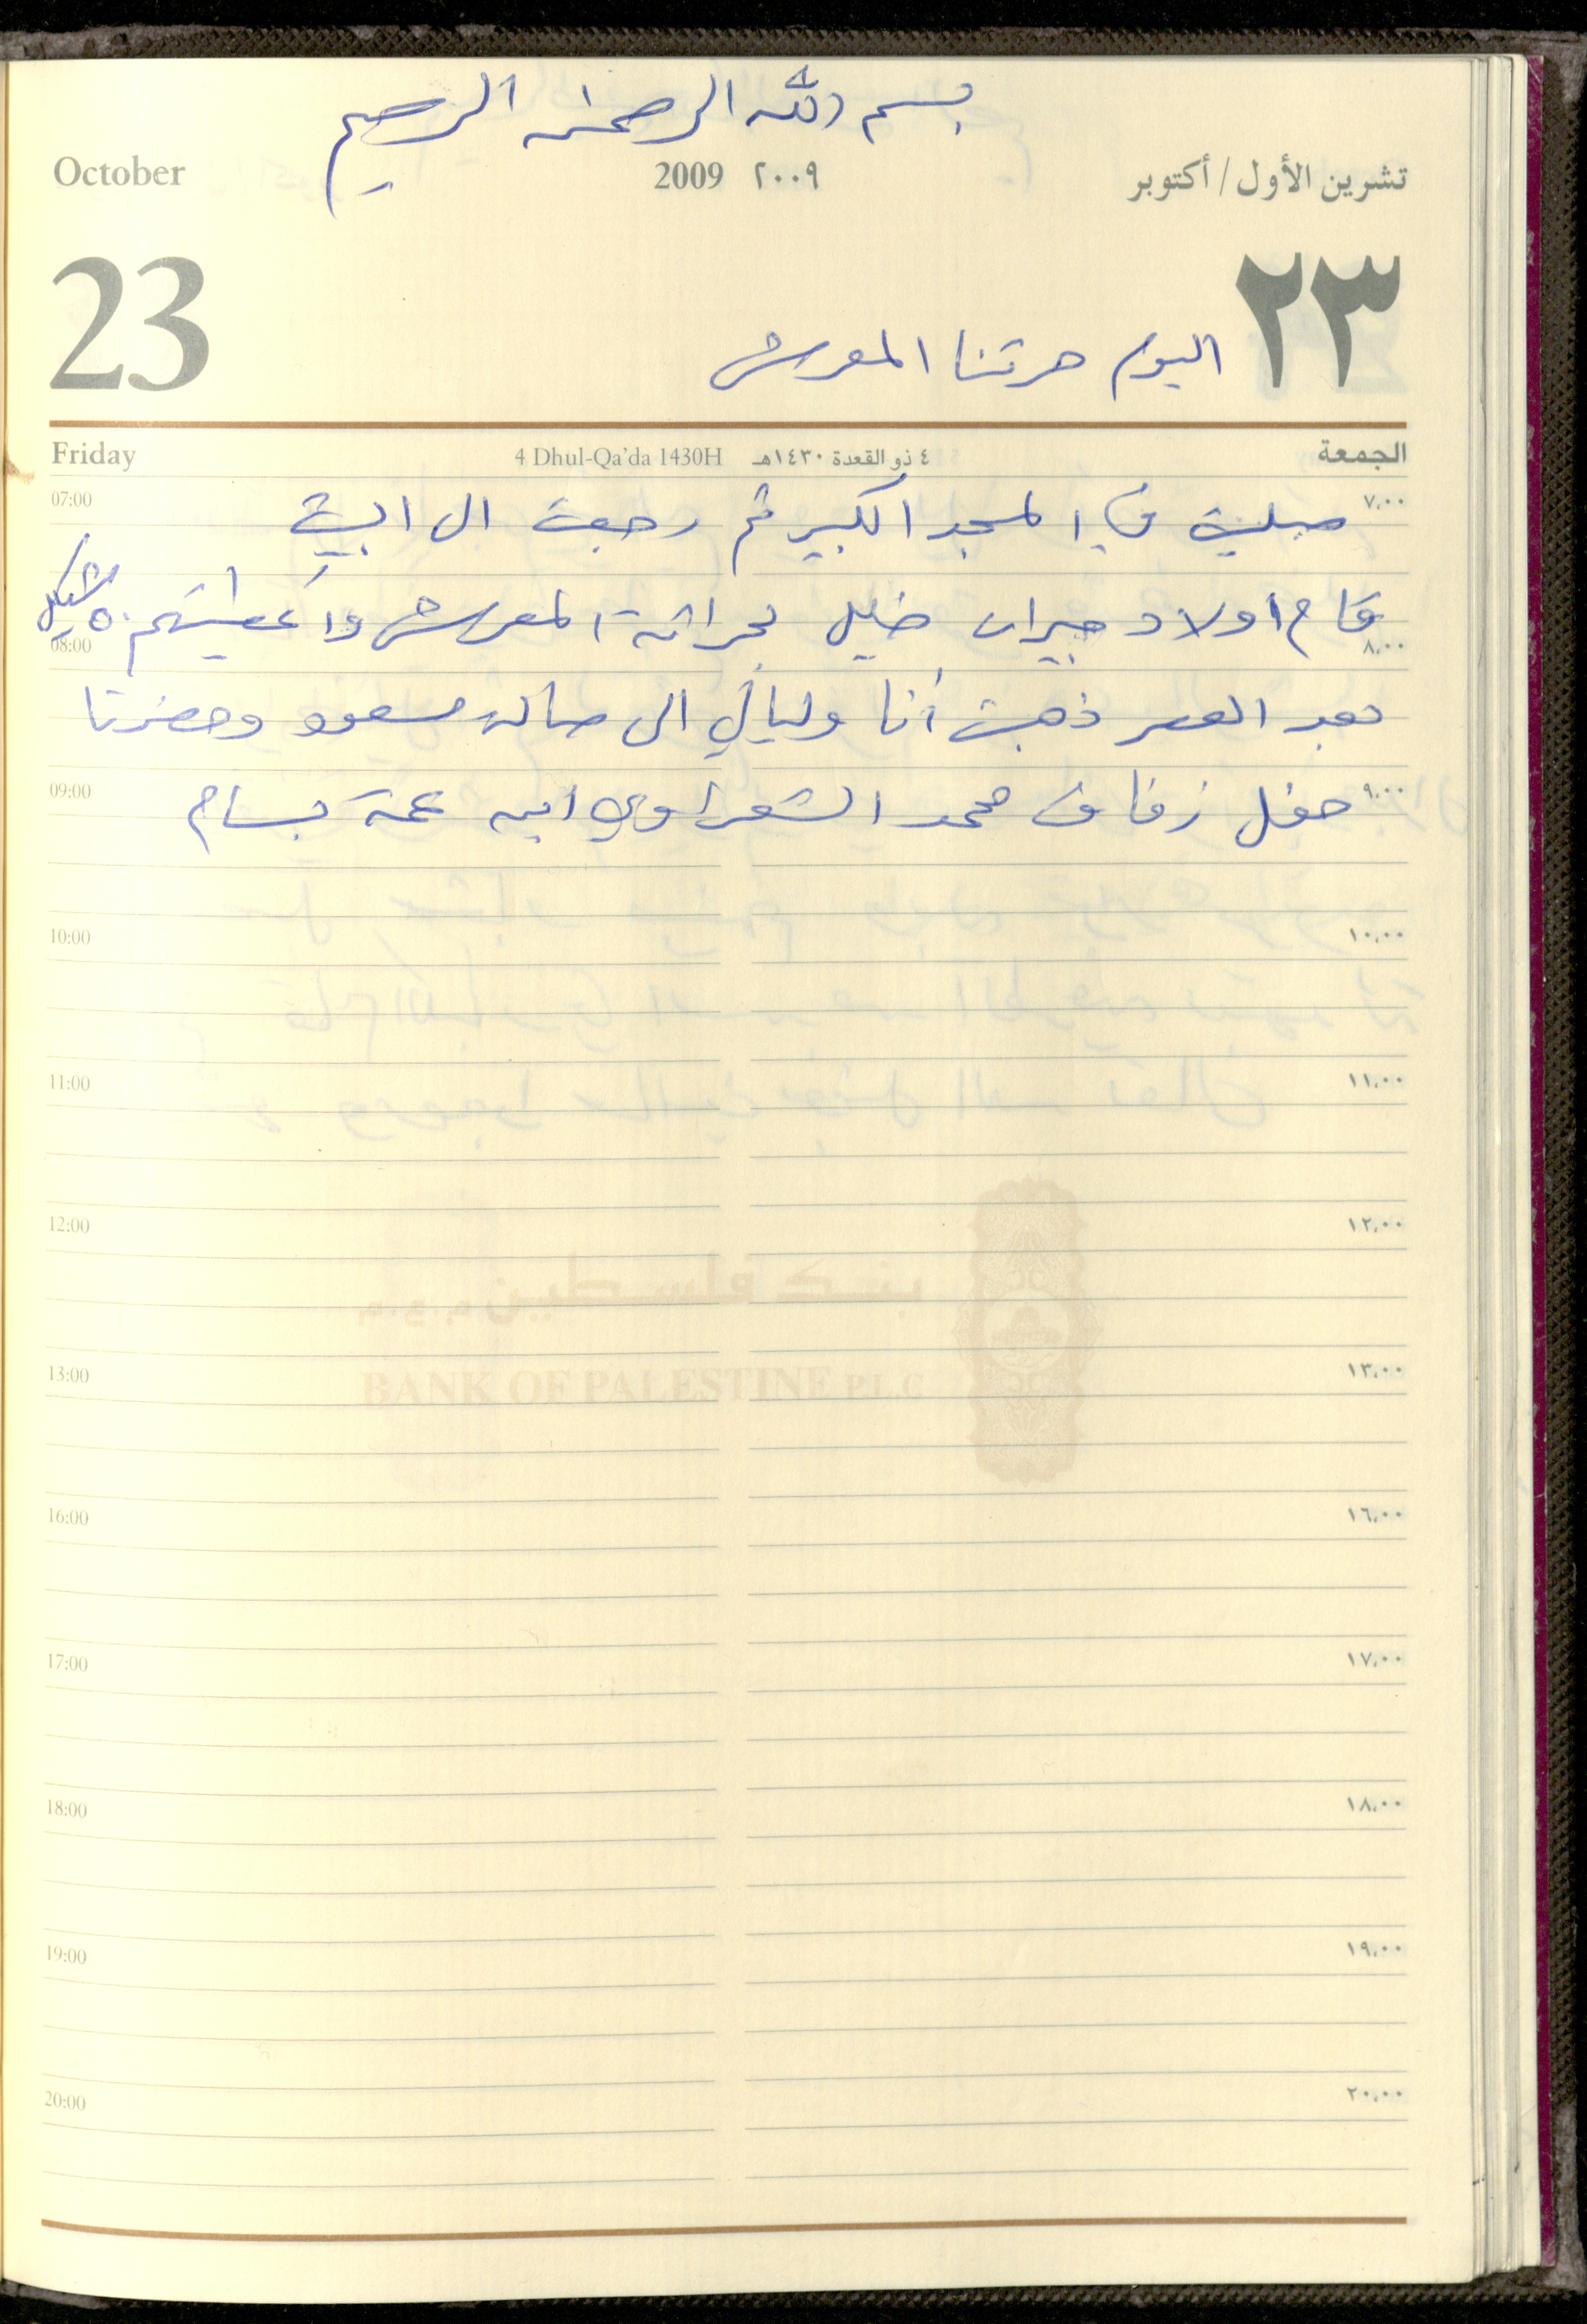 بسم الله الرحمن الرحيم
October 2009 ٢٠٠٩ تشرين الأول / أكتوبر
23 ٢٣
اليوم حرتنا المعرش
Friday 4 Dhul-Qa'da 1430H ٤ ذو القعدة ١٤٣٠هـ الجمعة
07:00 ٧,٠٠
صليت في المسجد الكبير ثم رجعت الى البيت
قام اولاد جيران خليل بحراثة المعرش وأعطيتهم ٥٠ شيكل
08:00 ٨,٠٠
بعد العصر ذهبت أنا وليالي الى صالة مسعود وحضرنا
09:00 ٩,٠٠
حفل زفاف محمد الشعراوي ابن عمة بسام
10:00 ١٠,٠٠
11:00 ١١,٠٠
12:00 ١٢,٠٠
بنك فلسطين
13:00 ١٣,٠٠
BANK OF PALESTINE PLC
16:00 ١٦,٠٠
17:00 ١٧,٠٠
18:00 ١٨,٠٠
19:00 ١٩,٠٠
20:00 ٢٠,٠٠